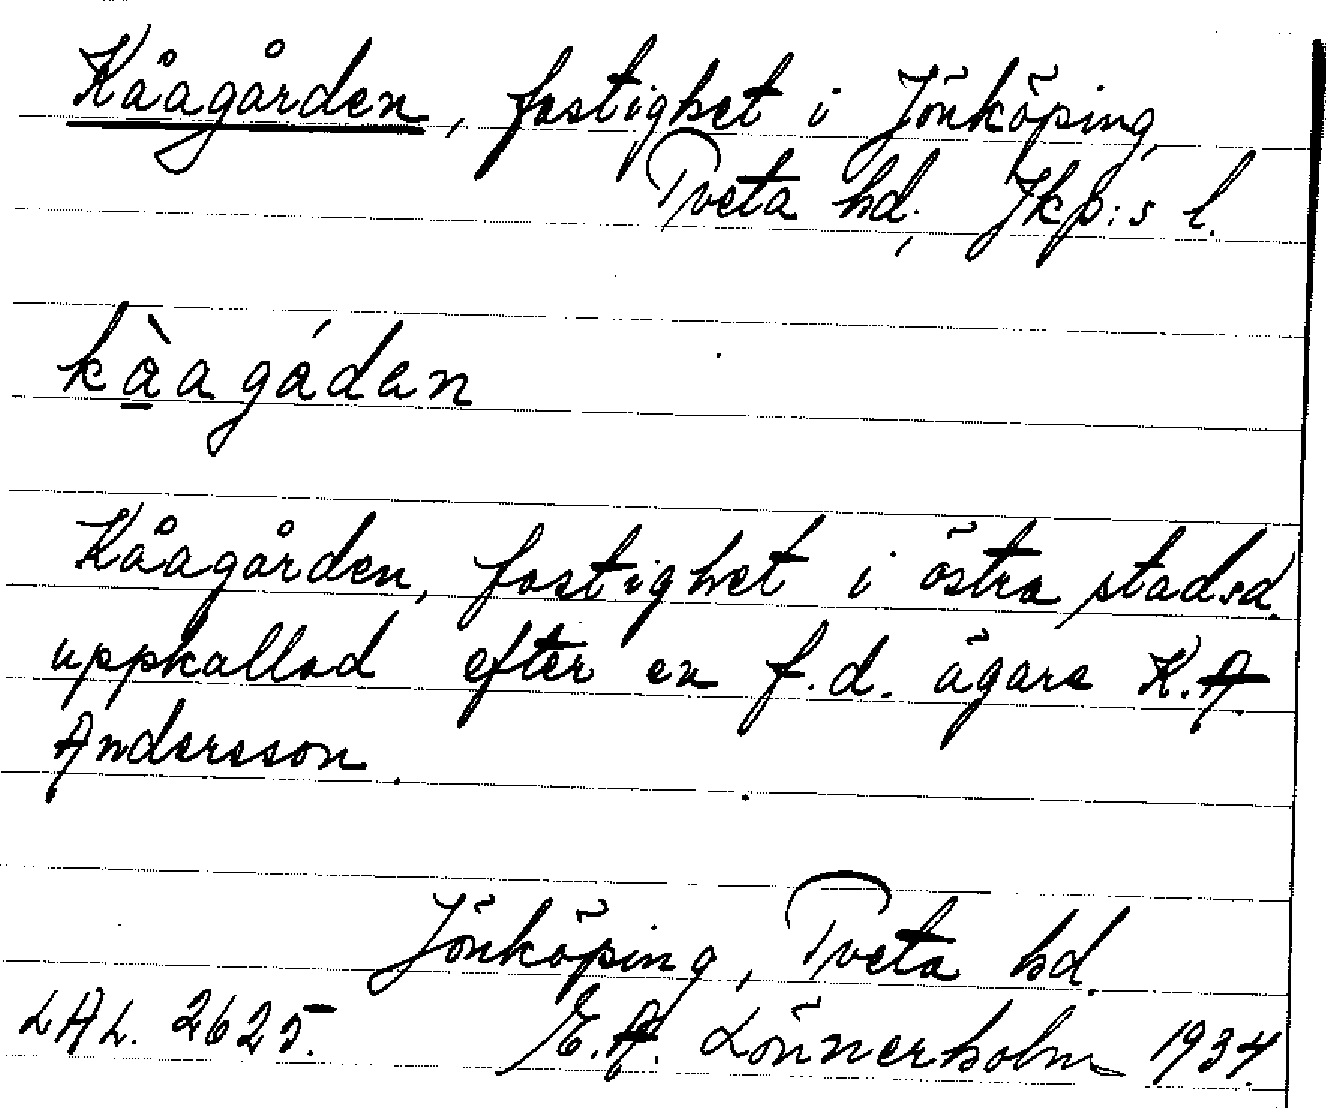 Kåagården, fastighet i Jönköping,
Tveta hd, Jkp:s l.
kàagádan
Kåagården, fastighet i östra stadsd.
uppkallad efter en f.d. ägare K.A.
Andersson.
Jönköping, Tveta hd.
LAL. 2625. E.A. Lönnerholm 1934.